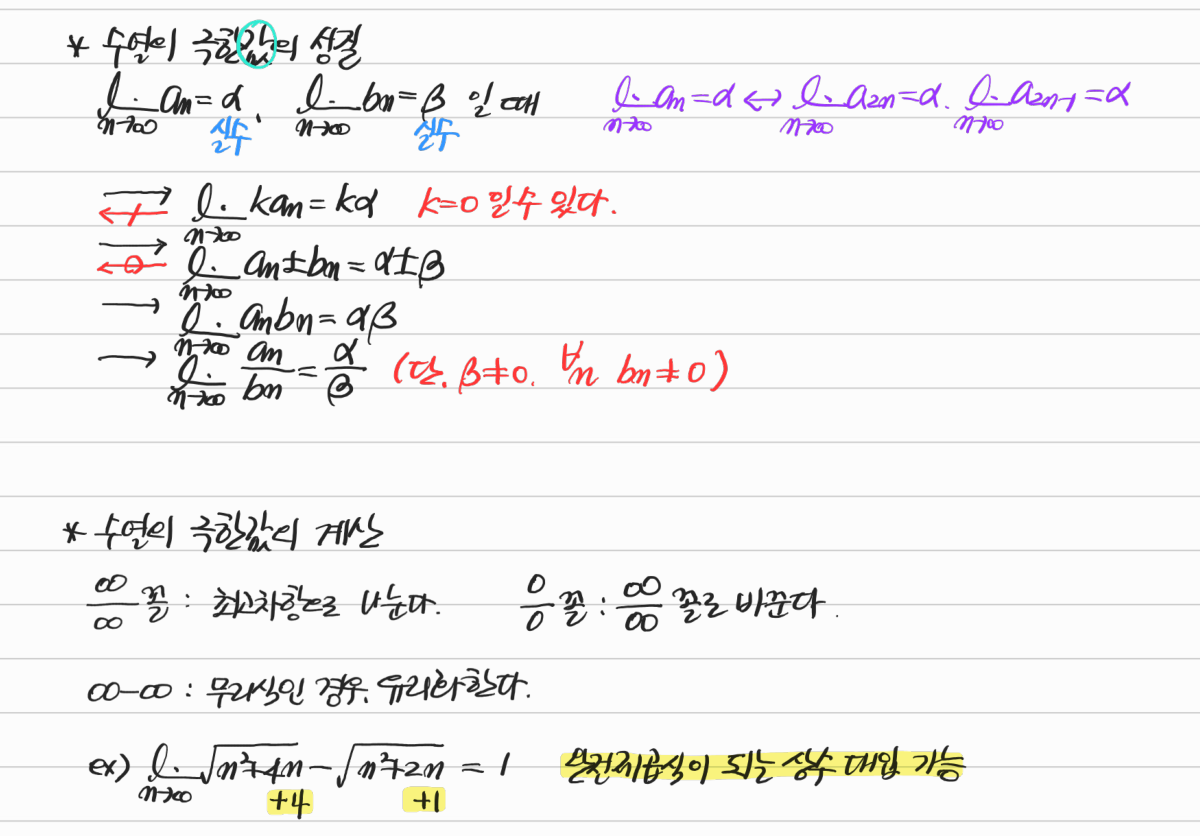 * 수열의 극한값의 성질
lim n→∞ an = α, lim n→∞ bn = β 일 때 lim n→∞ an = α ↔ lim n→∞ a2n = α, lim n→∞ a2n-1 = α
실수 실수
→ lim n→∞ kan = kα k=0 일수 있다.
→ lim n→∞ an±bn = α±β
→ lim n→∞ anbn = αβ
→ lim n→∞ an/bn = α/β (단, β≠0, ∀n bn≠0)
* 수열의 극한값의 계산
∞/∞ 꼴 : 최고차항으로 나눈다. 0/0 꼴 : ∞/∞ 꼴로 바꾼다.
∞-∞ : 무리식인 경우, 유리화한다.
ex) lim n→∞ √n²+4n - √n²+2n = 1 완전제곱식이 되는 상수 대입 가능
+4 +1